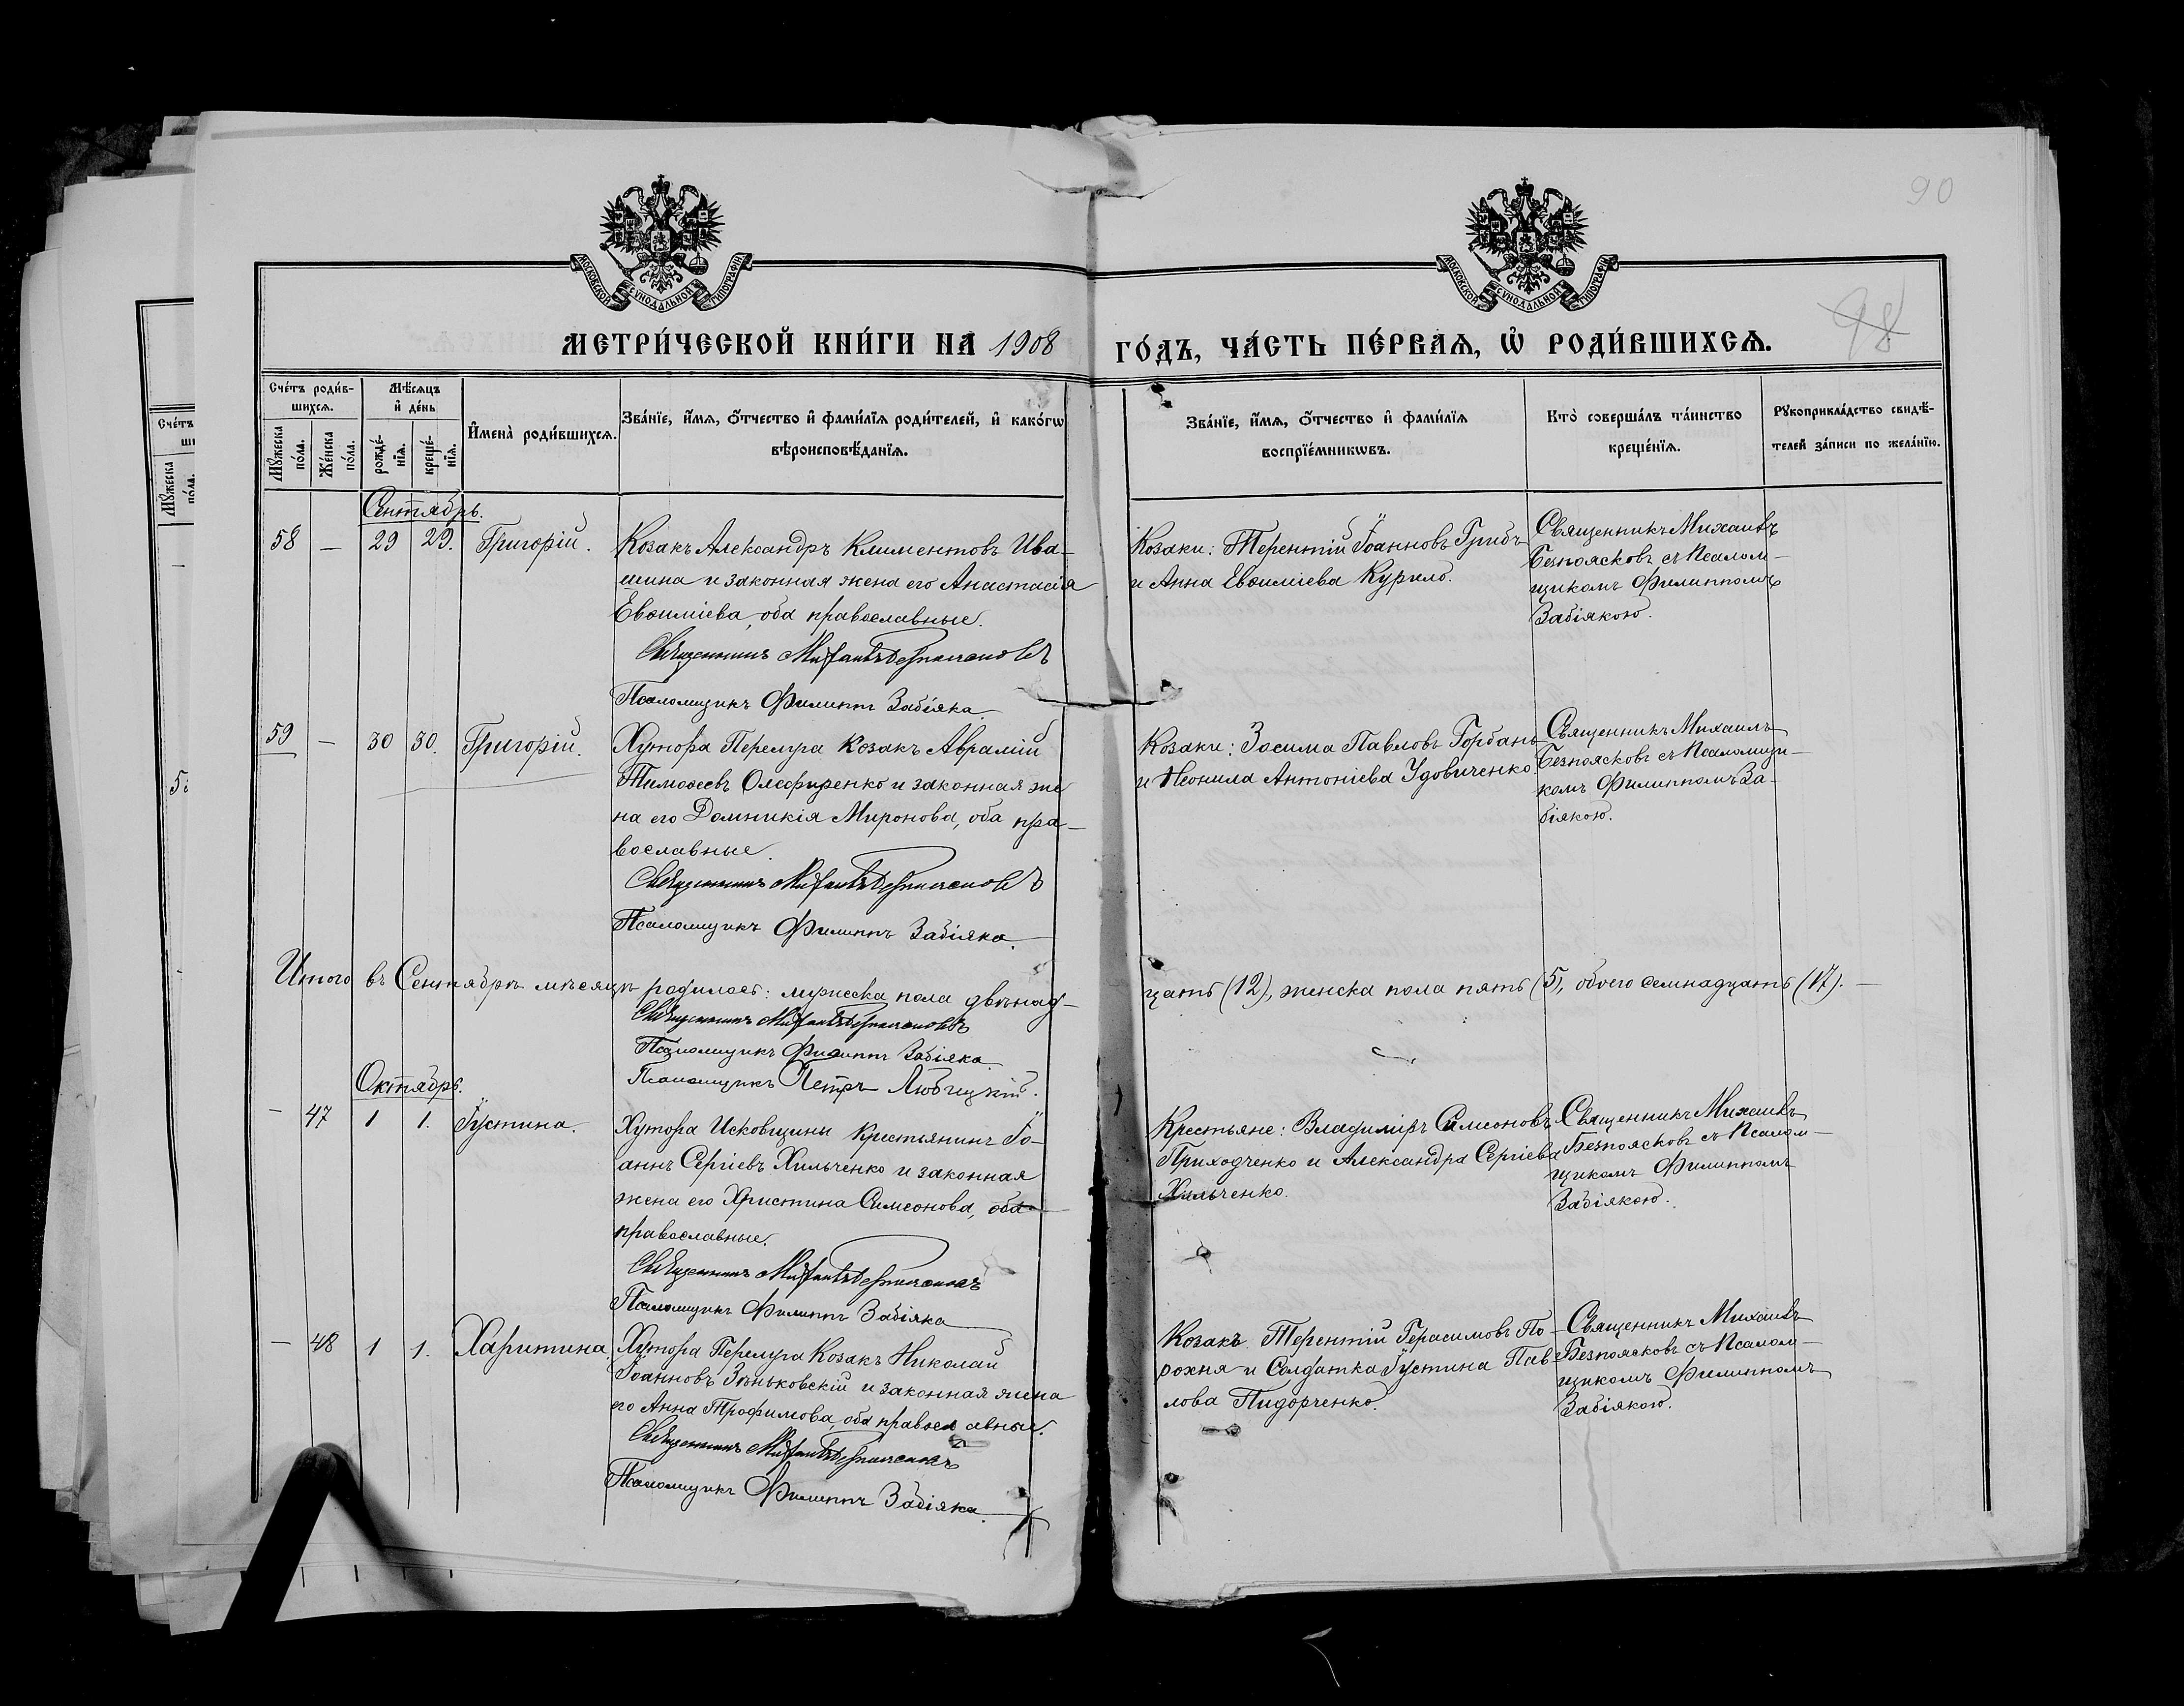 90
98
МОСКОВСКОЙ СУНОДАЛЬНОЙ ТИПОГРАФІИ
МОСКОВСКОЙ СУНОДАЛЬНОЙ ТИПОГРАФІИ
МЕТРИ́ЧЕСКОЙ КНИ́ГИ НА 1908
ГО́ДЪ, ЧА́СТЬ ПЕ́РВАѦ, Ѡ҆ РОДИ́ВШИХСѦ.
Сче́тъ роди́в-
шихсѧ.
Мꙋ́жеска
по́ла.
Же́нска
по́ла.
Мѣ́сѧцъ
и҆ де́нь
рожде́-
нїѧ.
креще́-
нїѧ.
И҆мена̀ роди́вшихсѧ.
Зва́нїе, и҆́мѧ, ѻ҆́тчество и҆ фами́лїѧ роди́телей, и҆ како́гѡ
вѣроисповѣ́данїѧ.
Зва́нїе, и҆́мѧ, ѻ҆́тчество и҆ фами́лїѧ
воспрїе́мникѡвъ.
Кто̀ соверша́лъ та́инство
креще́нїѧ.
Рꙋкоприкла́дство свидѣ́-
телей за́писи по жела́нїю.
Сентябрь.
58 — 29 29. Григорій.
Козакъ Александръ Климентовъ Ива-
шина и законная жена его Анастасія
Евѳиміева, оба православные.
Священникъ Михаилъ Безпоясковъ
Псаломщикъ Филиппъ Забіяка.
Козаки: Терентій Іоанновъ Грибъ
и Анна Евѳиміева Курило.
Священникъ Михаилъ
Безпоясковъ съ Псалом-
щикомъ Филиппомъ
Забіякою.
59 — 30 30. Григорій.
Хутора Перелуга Козакъ Аврамій
Тимоѳеевъ Олефиренко и законная же
на его Домникія Миронова, оба пра-
вославные.
Священникъ Михаилъ Безпоясковъ
Псаломщикъ Филиппъ Забіяка.
Козаки: Зосима Павловъ Горбань
и Неонила Антоніева Удовиченко.
Священникъ Михаилъ
Безпоясковъ съ Псаломщи-
комъ Филиппомъ За-
біякою.
Итого въ Сентябрѣ мѣсяцѣ родилось: мужеска пола двѣнад-
цать (12), женска пола пять (5), обоего семнадцать (17). —
Священникъ Михаилъ Безпоясковъ
Псаломщикъ Филиппъ Забіяка
Псаломщикъ Петръ Любицкій.
Октябрь.
— 47 1 1. Іустина.
Хутора Исковщины Крестьянинъ Іо-
аннъ Сергіевъ Хильченко и законная
жена его Христина Симеонова, оба
православные.
Священникъ Михаилъ Безпоясковъ
Псаломщикъ Филиппъ Забіяка
Крестьяне: Владиміръ Симеоновъ
Приходченко и Александра Сергіева
Хильченко.
Священникъ Михаилъ
Безпоясковъ съ Псалом-
щикомъ Филиппомъ
Забіякою.
— 48 1 1. Харитина
Хутора Перелуга Козакъ Николай
Іоанновъ Зѣньковскій и законная жена
его Анна Трофимова, оба православные.
Священникъ Михаилъ Безпоясковъ
Псаломщикъ Филиппъ Забіяка.
Козакъ Терентій Герасимовъ По-
рохня и Солдатка Іустина Пав-
лова Пидорченко.
Священникъ Михаилъ
Безпоясковъ съ Псалом-
щикомъ Филиппомъ
Забіякою.